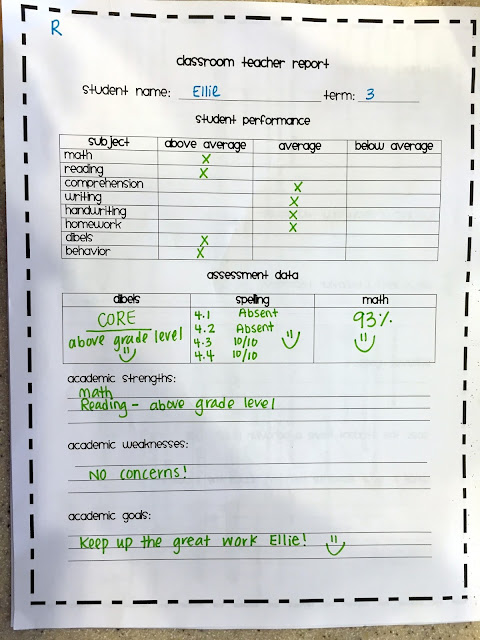 R
classroom teacher report
student name: Ellie term: 3
student performance
subject above average average below average
math X
reading X
comprehension X
writing X
handwriting X
homework X
dibels X
behavior X
assessment data
dibels spelling math
CORE 4.1 Absent 93%
above grade level 4.2 Absent
4.3 10/10
4.4 10/10
academic strengths:
math
Reading - above grade level
academic weaknesses:
No concerns!
academic goals:
Keep up the great work Ellie!